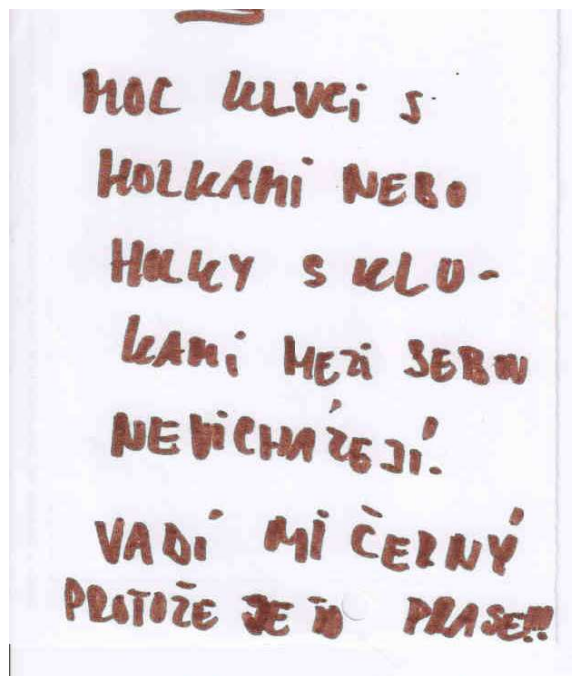 MOC KLUCI S
HOLKAMI NEBO
HOLKY S KLU-
KAMI MEZI SEBOU
NEVICHÁZEJÍ.
VADÍ MI ČERNÝ
PROTOŽE JE TO PRASE!!!